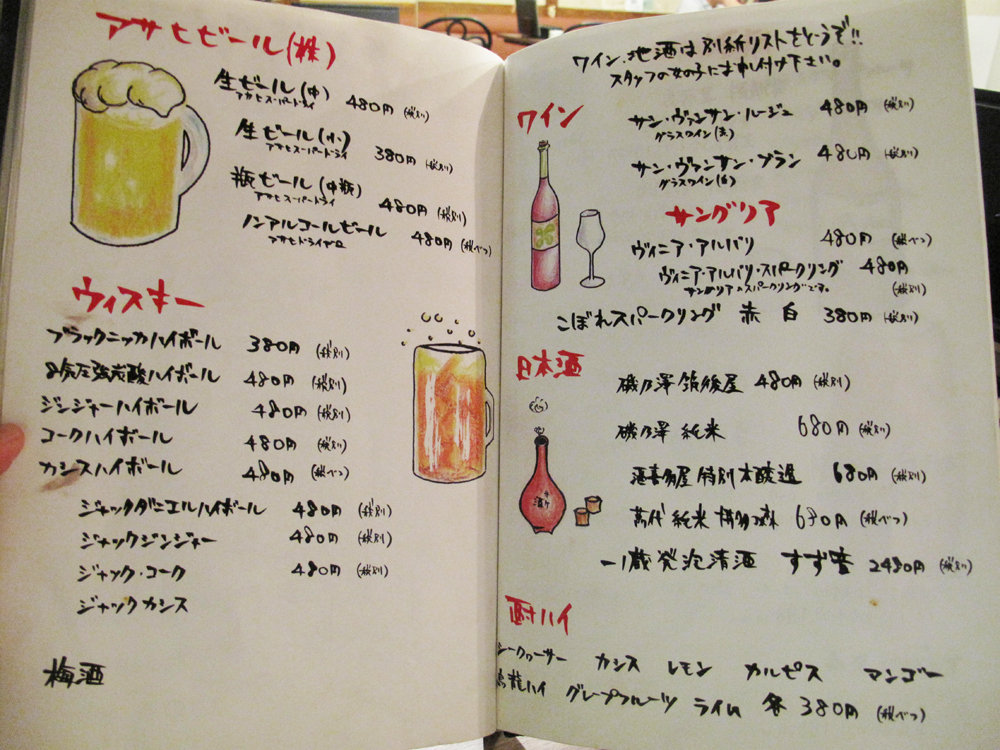 アサヒビール(株)
生ビール(中) 480円(税別)
アサヒスーパードライ
生ビール(小) 380円(税別)
アサヒスーパードライ
瓶ビール(中瓶) 480円(税別)
アサヒスーパードライ
ノンアルコールビール 480円(税べつ)
アサヒドライゼロ
ウィスキー
ブラックニッカハイボール 380円(税別)
強炭酸ハイボール 480円(税別)
ジンジャーハイボール 480円(税別)
コークハイボール 480円(税別)
カシスハイボール 480円(税べつ)
ジャックダニエルハイボール 480円(税別)
ジャックジンジャー 480円(税別)
ジャック・コーク 480円(税別)
ジャックカシス
梅酒
ワイン、地酒は別紙リストをどうぞ!!
スタッフの女の子にお申し付け下さい。
ワイン
サン・ヴァンサン・ルージュ 480円(税別)
グラスワイン(赤)
サン・ヴァンサン・ブラン 480円(税別)
グラスワイン(白)
サングリア
ヴィニア・アルバリ 480円(税べつ)
ヴィニア・アルバリ・スパークリング 480円
サングリアのスパークリングです。 (税別)
こぼれスパークリング 赤 白 380円(税別)
日本酒
磯乃澤 筑後屋 480円(税別)
磯乃澤 純米 680円(税別)
酒喜多屋 特別本醸造 680円(税別)
萬代 純米 博多の 680円(税べつ)
一蔵 発泡清酒 すず音 2480円(税別)
酎ハイ
シークヮーサー カシス レモン カルピス マンゴー
烏龍ハイ グレープフルーツ ライム 各380円(税べつ)